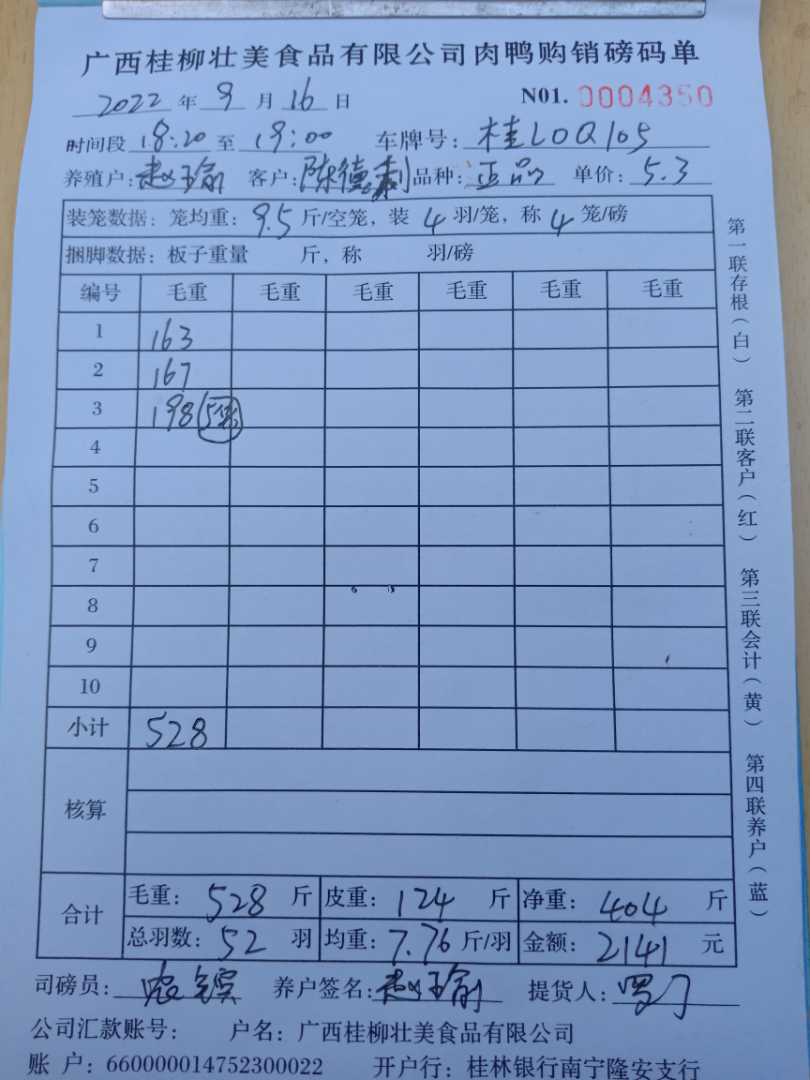 广西桂柳壮美食品有限公司肉鸭购销磅码单
2022 年 9 月 16 日 N01. 0004350
时间段 18:20 至 19:00 车牌号: 桂L0Q105
养殖户: 赵玉瑜 客户: 陈德利 品种: 正品 单价: 5.3
装笼数据: 笼均重: 9.5 斤/空笼, 装 4 羽/笼, 称 4 笼/磅
捆脚数据: 板子重量 斤, 称 羽/磅
编号 毛重 毛重 毛重 毛重 毛重 毛重
1 163
2 167
3 198
4
5
6
7
8
9
10
小计 528
核算
合计
毛重: 528 斤 皮重: 124 斤 净重: 404 斤
总羽数: 52 羽 均重: 7.76 斤/羽 金额: 2141 元
司磅员: 养户签名: 赵玉瑜 提货人:
公司汇款账号: 户名: 广西桂柳壮美食品有限公司
账 户: 660000014752300022 开户行: 桂林银行南宁隆安支行
第一联存根(白) 第二联客户(红) 第三联会计(黄) 第四联养户(蓝)